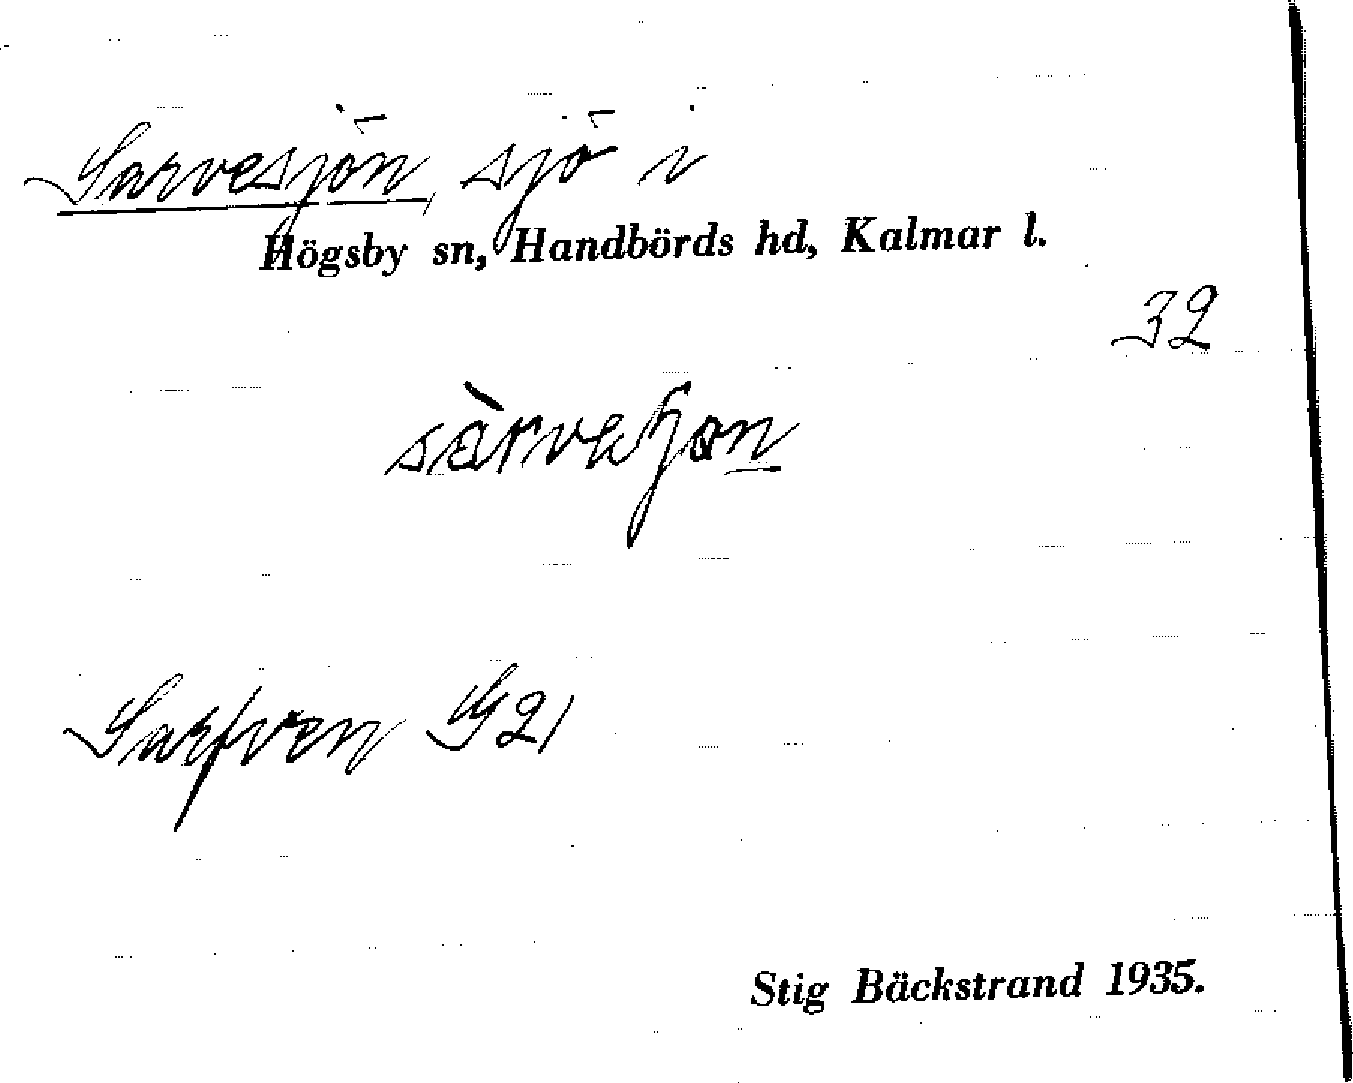 Sarvesjön, sjö i
Högsby sn, Handbörds hd, Kalmar l.
32
Sarfven G21
Stig Bäckstrand 1935.